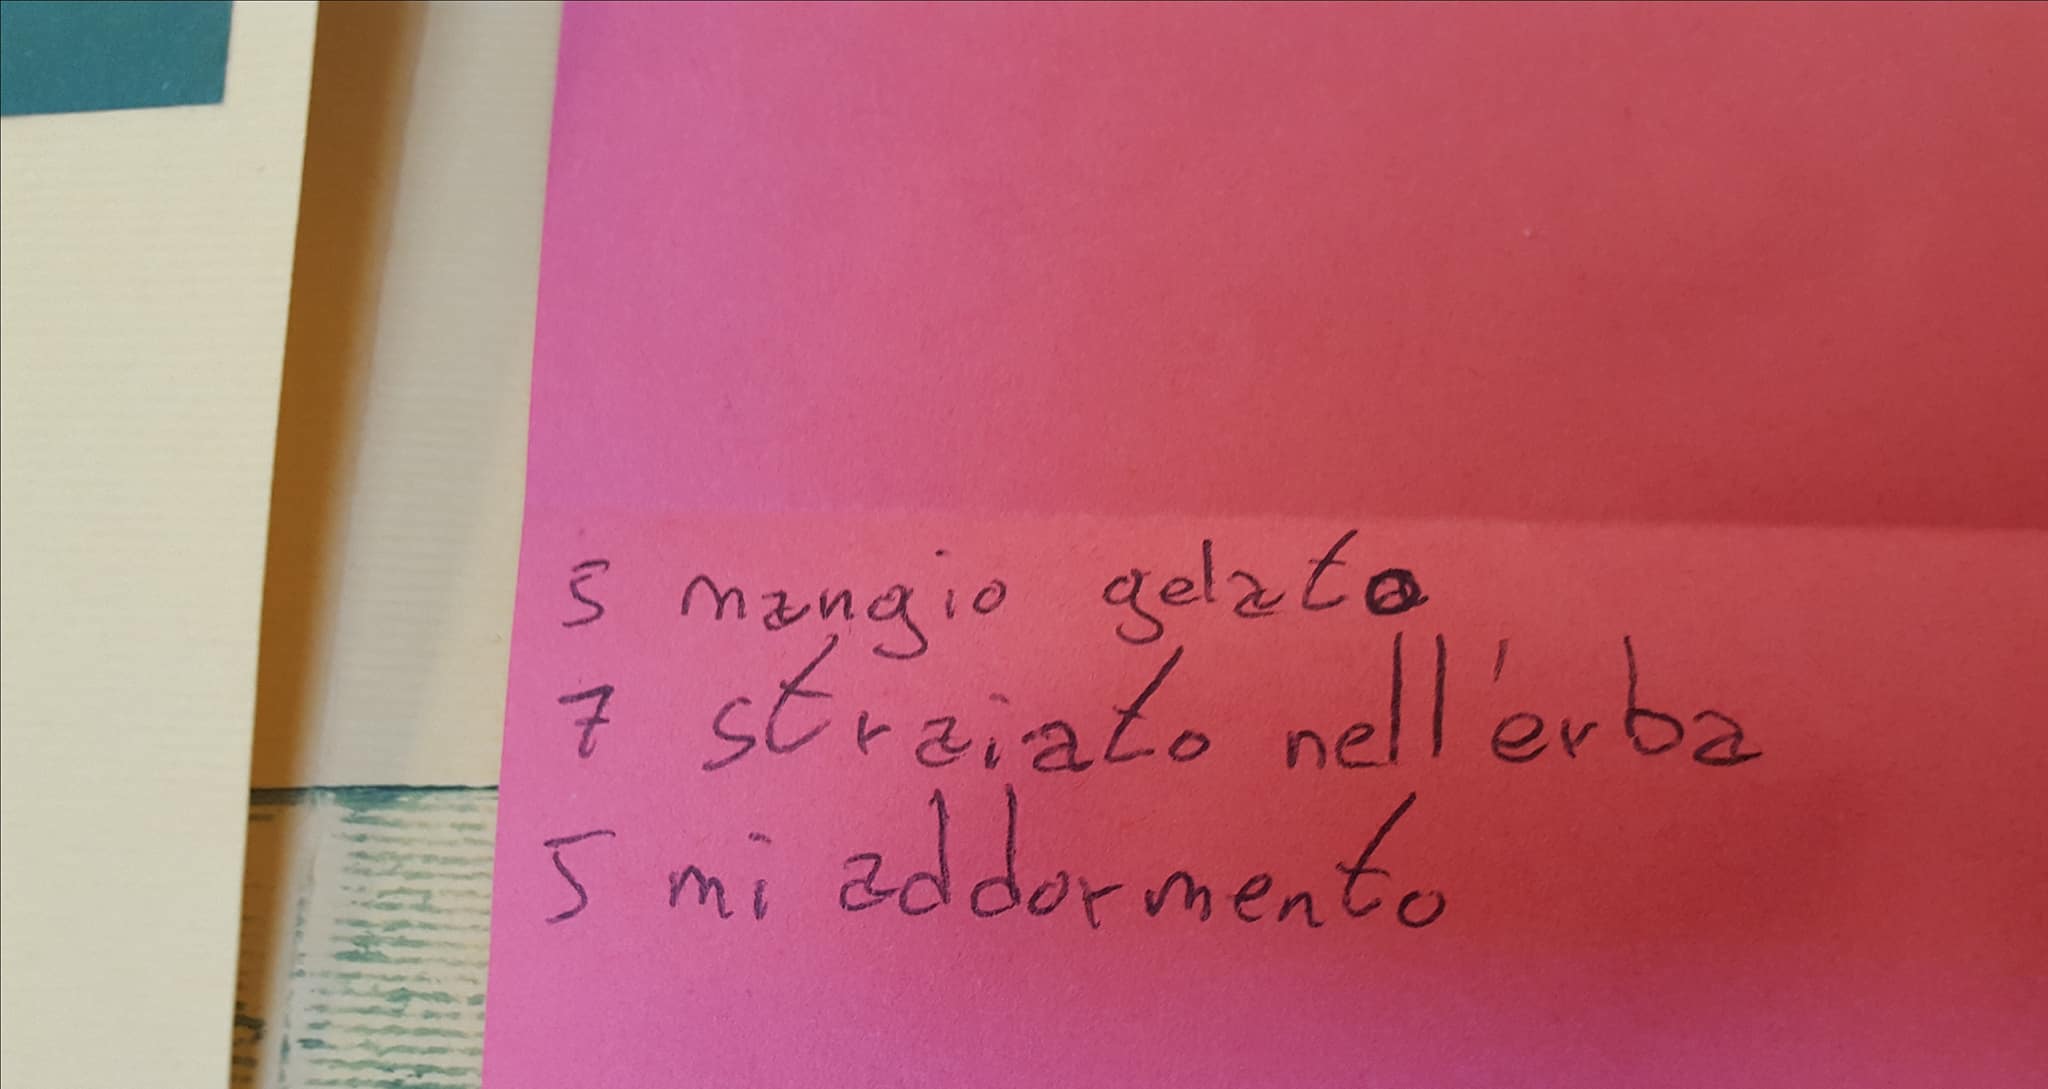 5 mangio gelato
7 straiato nell'erba
5 mi addormento